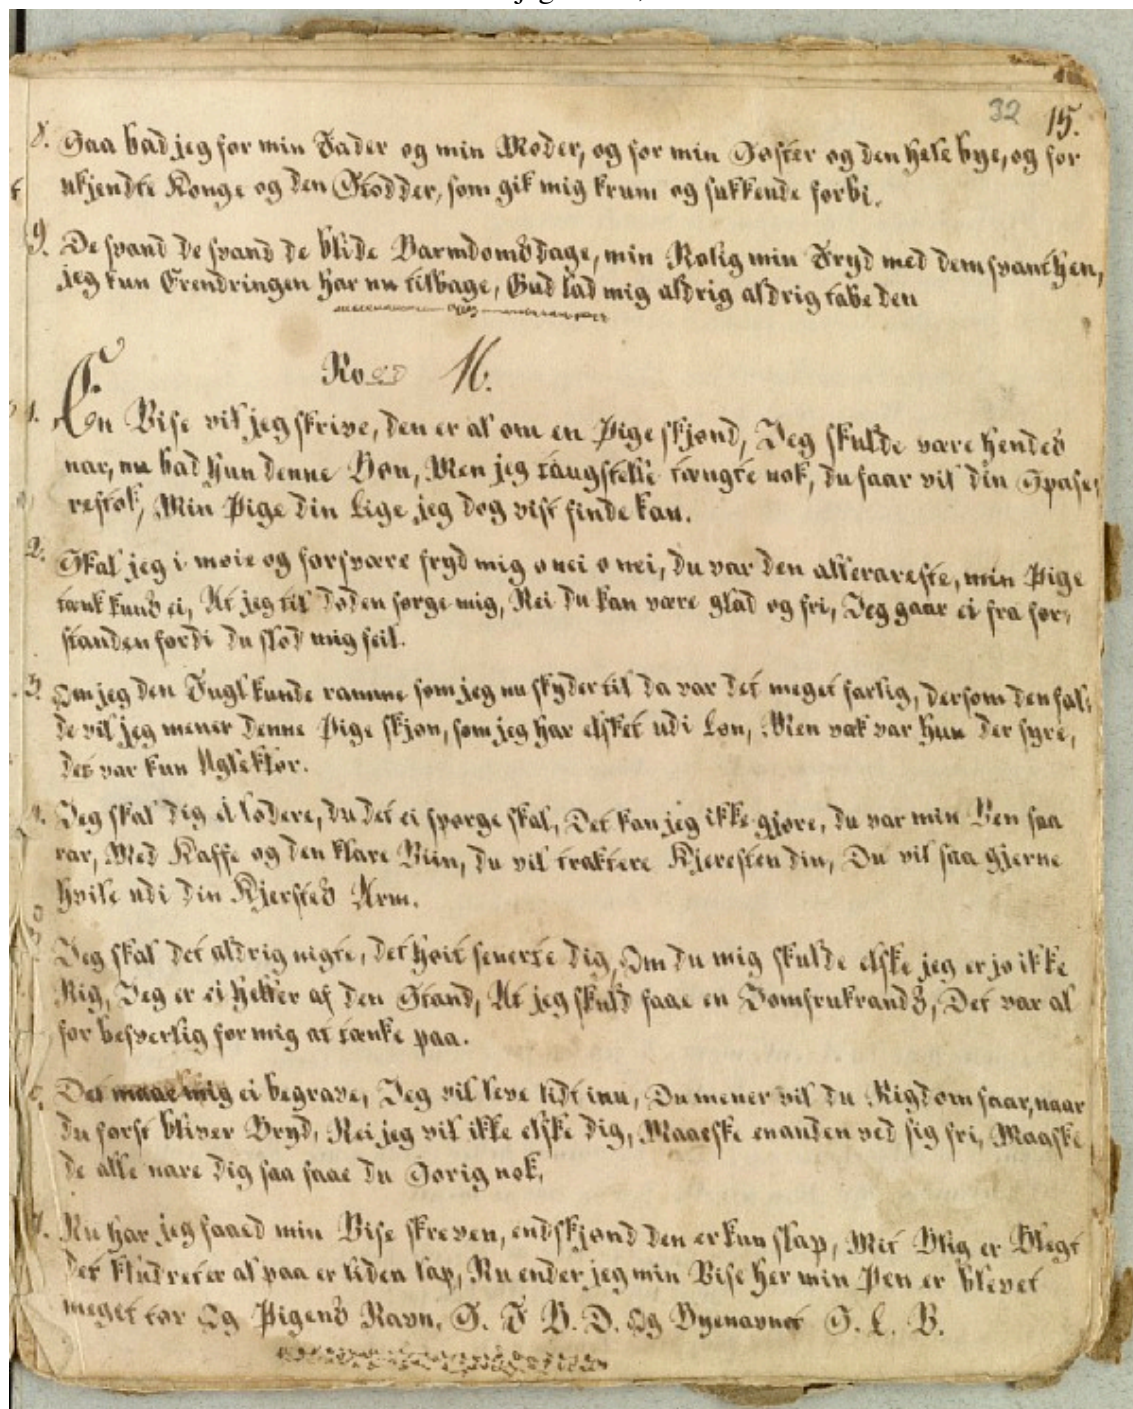 32 15.
8. Saa bad jeg for min Fader og min Moder, og for min Søster og den hele bye, og for
ukjendte Konge og den Stodder, som gik mig krum og sukkende forbi.
9. De svand de svand de blide Barndomsdage, min Rolig min Fryd med dem svant hen,
jeg kun Erendringen har nu tilbage, Gud lad mig aldrig aldrig tabe den
No 16.
1. En Vise vil jeg skrive, den er al om en Pige skjønd, Jeg skulde være hendes
nar, nu bad hun denne Bøn, Men jeg taugstille tængte nok, du faar vil din Spase,
restok, Min Pige din Lige jeg dog vist finde kan.
2. Skal jeg i møie og forsvære fryd mig o nei o nei, du var den allerareste, min Pige
tænk kuns ei, At jeg til døden sørge mig, Nei du kan være glad og fri, Jeg gaar ei fra for,
standen fordi du slod mig feil.
3. Om jeg den Fugl kunde ramme som jeg nu skyder til da var det meget farlig, dersom den fal,
de vil jeg mener denne Pige skjøn, som jeg har elsket udi Løn, Men væk var hun der
det var kun
4. Jeg skal dig ei lodere, du det ei spørge skal, Det kan jeg ikke gjøre, du var min Ven saa
rar, Med Kaffe og den klare Viin, du vil traktere Kjeresten din, Du vil saa gjerne
hvile udi din Kjerstes Arm.
Jeg skal det aldrig nigte, det høit dig, Om du mig skulde elske jeg er jo ikke
Rig, Jeg er ei heller af den Stand, At jeg skuld faae en Jomfrukrands, Det var al
for besverlig for mig at tænke paa.
Det maae mig ei begrave, Jeg vil leve lidt inu, Du mener vil du Rigdom faar, naar
du først bliver Bryd, Nei jeg vil ikke elske dig, Maaeske enanden ved sig fri, Maaske
de alle nare dig saa faae du Sorig nok,
7. Nu har jeg faaed min Vise skreven, endskjønd den er kun slap, Mit Blig er Blegt
det kludret er al paa er liden lap, Nu ender jeg min Vise her min Pen er blevet
meget tør Og Pigens Navn. S. F B. D. Og Byenavnet S. L. B.